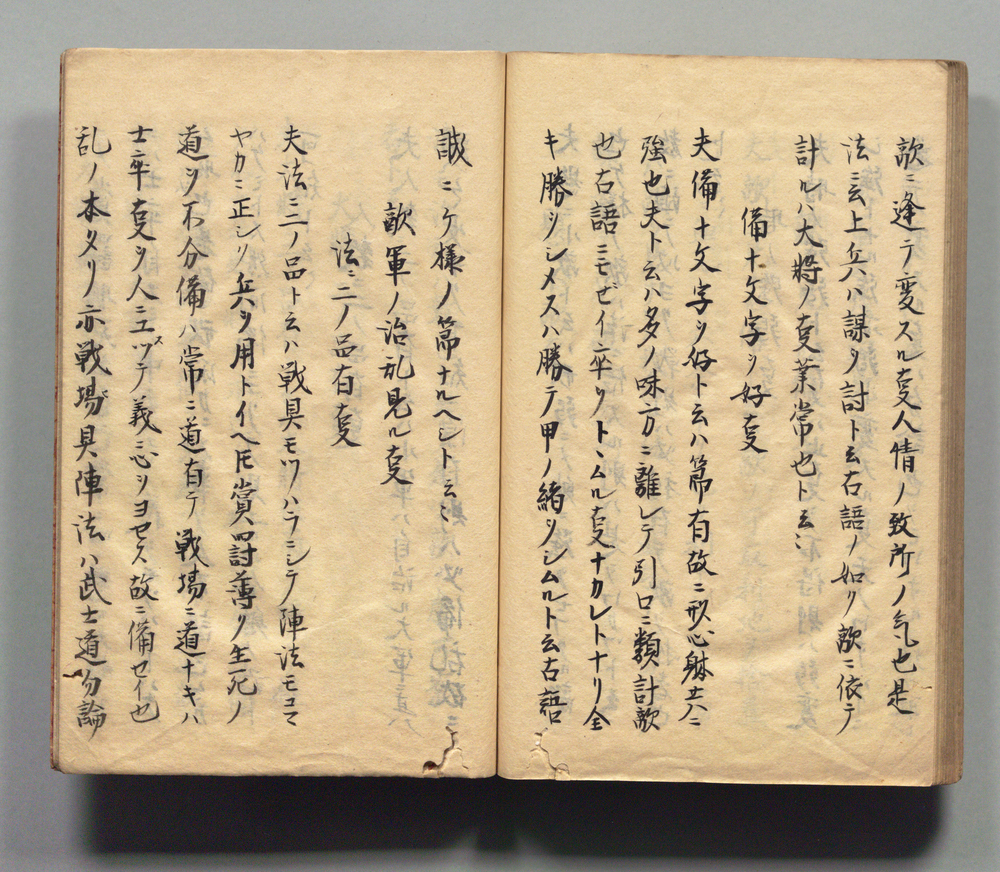 敵ニ逢テ変スル㕝人情ノ致所ノ气也是
法ニ云上兵ハ謀ヲ討ト云右語ノ如ク敵ニ依テ
計ルハ大将ノ㕝業常也ト云〻
備十文字ヲ好㕝
夫備十文字ヲ好ト云ハ節有故ニ形心躰共ニ
強也夫ト云ハ多ノ味方ニ離レテ引口ニ類計敵
也右語ニモセイ卒ヲトヽムル㕝ナカレトナリ全
キ勝ヲシメスハ勝テ甲ノ緒ヲシムルト云古語
誠ニケ様ノ節ナルヘシト云〻
敵軍ノ治乱見ル㕝
法ニ二ノ品有㕝
夫法ニ二ノ品ト云ハ戦具モツハラニシテ陣法モコマ
ヤカニ正シク兵ヲ用トイヘ𪜈賞罰薄ク生死ノ
道ヲ不分備ハ常ニ道有テ戦場ニ道ナキハ
士卒㕝ヲ人ニユツテ義ニ心ヲヨセス故ニ備セイ也
乱ノ本タリ亦戦場具陣法ハ武士道勿論